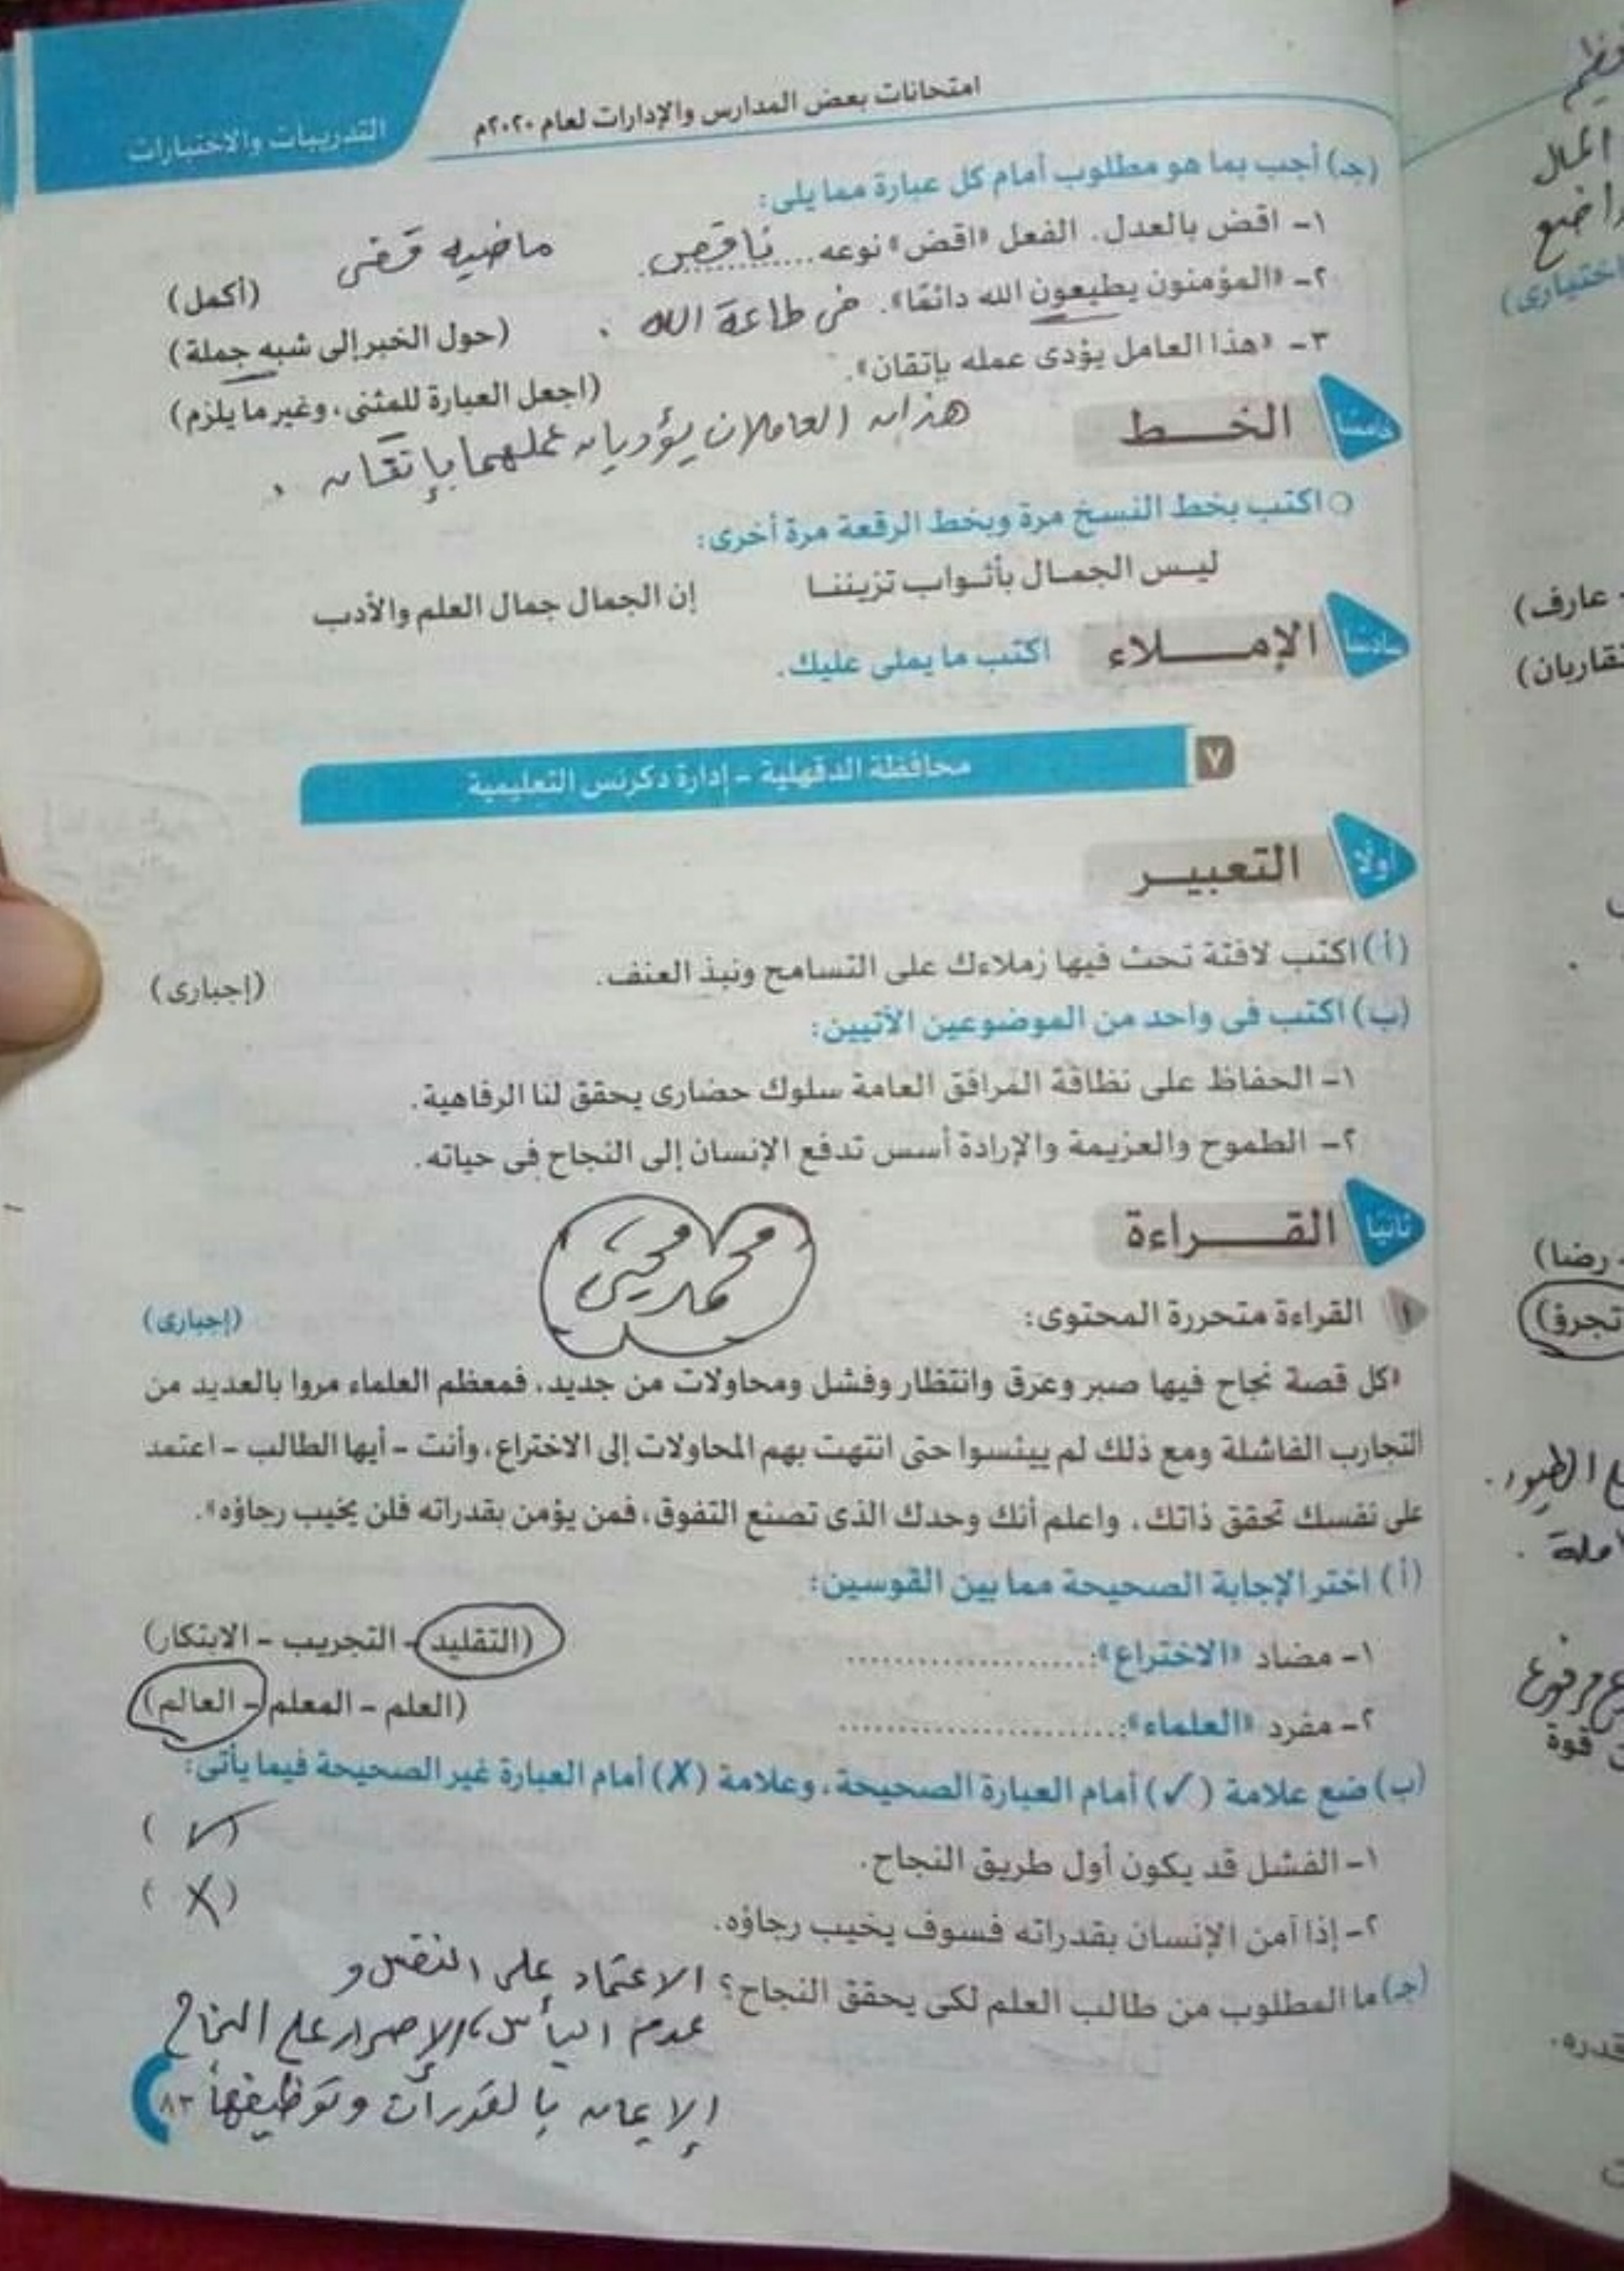 امتحانات بعض المدارس والإدارات لعام ٢٠٢٠م
التدريبات والاختبارات
(جـ) أجب بما هو مطلوب أمام كل عبارة مما يلى:
١- اقض بالعدل. الفعل «اقض» نوعه ..... ناقص ..... ماضيه قضى (أكمل)
٢- «المؤمنون يطيعون الله دائمًا». فى طاعة الله . (حول الخبر إلى شبه جملة)
٣- «هذا العامل يؤدى عمله بإتقان». (اجعل العبارة للمثنى، وغير ما يلزم)
هذان العاملان يؤديان عملهما بإتقان .
خامسًا الخــط
اكتب بخط النسخ مرة وبخط الرقعة مرة أخرى:
ليس الجمال بأثواب تزيننا إن الجمال جمال العلم والأدب
سادسًا الإمــلاء اكتب ما يملى عليك.
٧ محافظة الدقهلية - إدارة دكرنس التعليمية
أولًا التعبيــر
(أ) اكتب لافتة تحث فيها زملاءك على التسامح ونبذ العنف. (إجبارى)
(ب) اكتب فى واحد من الموضوعين الآتيين:
١- الحفاظ على نظافة المرافق العامة سلوك حضارى يحقق لنا الرفاهية.
٢- الطموح والعزيمة والإرادة أسس تدفع الإنسان إلى النجاح فى حياته.
ثانيًا القــراءة
محمد
١ القراءة متحررة المحتوى: (إجبارى)
«كل قصة نجاح فيها صبر وعرق وانتظار وفشل ومحاولات من جديد، فمعظم العلماء مروا بالعديد من
التجارب الفاشلة ومع ذلك لم ييئسوا حتى انتهت بهم المحاولات إلى الاختراع، وأنت - أيها الطالب - اعتمد
على نفسك تحقق ذاتك، واعلم أنك وحدك الذى تصنع التفوق، فمن يؤمن بقدراته فلن يخيب رجاؤه».
(أ) اختر الإجابة الصحيحة مما بين القوسين:
١- مضاد «الاختراع»: ..................... (التقليد - التجريب - الابتكار)
٢- مفرد «العلماء»: ..................... (العلم - المعلم - العالم)
(ب) ضع علامة (✓) أمام العبارة الصحيحة، وعلامة (✗) أمام العبارة غير الصحيحة فيما يأتى:
١- الفشل قد يكون أول طريق النجاح. (✓)
٢- إذا آمن الإنسان بقدراته فسوف يخيب رجاؤه. (✗)
(جـ) ما المطلوب من طالب العلم لكى يحقق النجاح؟ الاعتماد على النفس و
عدم اليأس، الإصرار على النجاح
الإيمان بالقدرات وتوظيفها
٨٣
المال
اختيارى)
- عارف)
- رضا)
تجرؤ)
الطيور.
مرفوع
قوة
قدره.